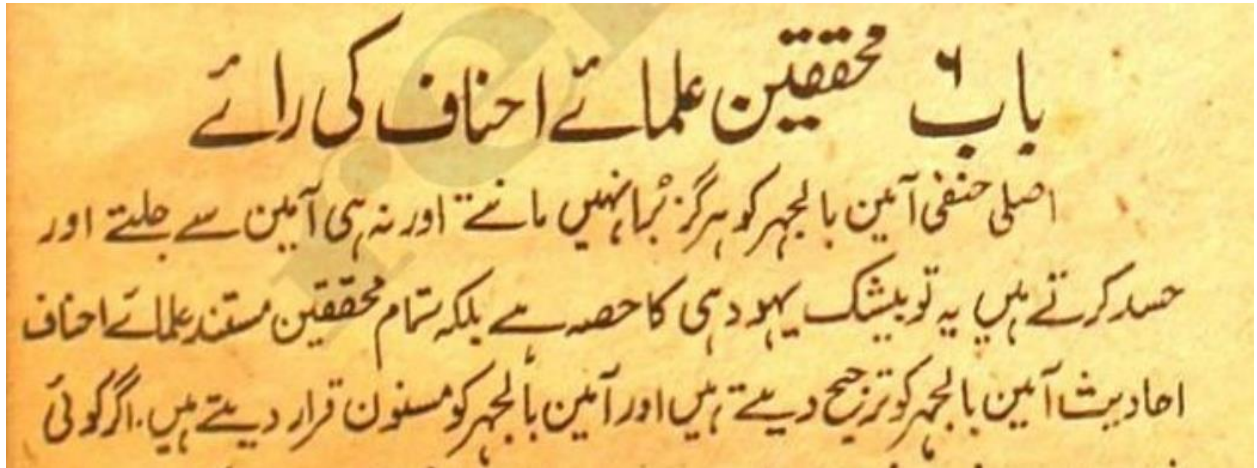 باب ۶ محققین علمائے احناف کی رائے
اصلی حنفی آمین بالجہر کو ہرگز بُرا نہیں مانتے اور نہ ہی آمین سے جلتے اور
حسد کرتے ہیں یہ تو بیشک یہود ہی کا حصہ ہے بلکہ تمام محققین مستند علمائے احناف
احادیث آمین بالجہر کو ترجیح دیتے ہیں اور آمین بالجہر کو مسنون قرار دیتے ہیں. اگر کوئی